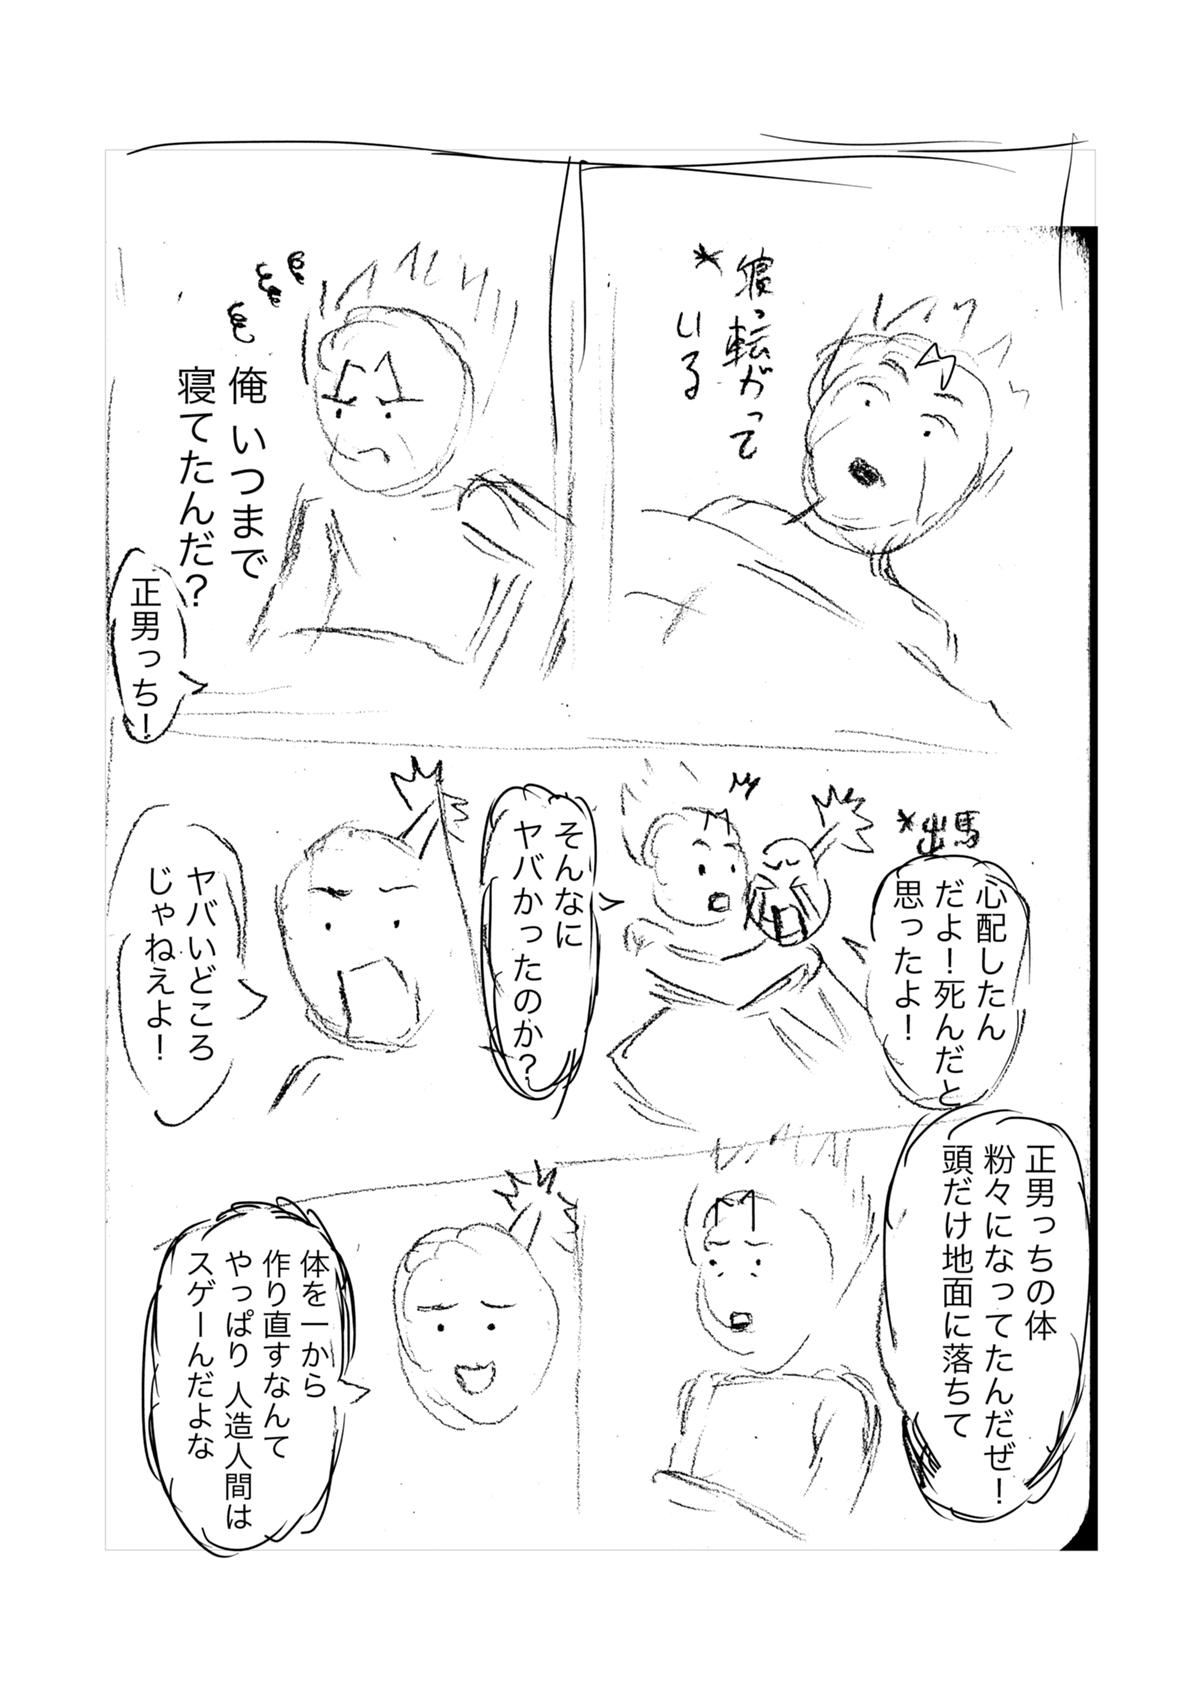 *寝っ転がって
いる
俺 いつまで
寝てたんだ?
正男っち!
*出馬
心配したん
だよ!死んだと
思ったよ!
そんなに
ヤバかったのか?
ヤバいどころ
じゃねえよ!
正男っちの体
粉々になってたんだぜ!
頭だけ地面に落ちて
体を一から
作り直すなんて
やっぱり 人造人間は
スゲーんだよな